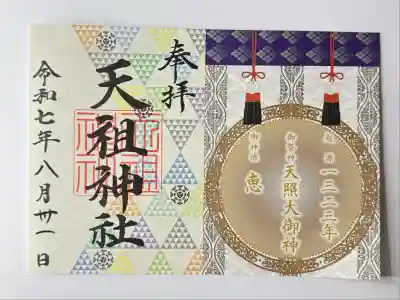 奉拝
天祖神社
令和七年八月卅一日
起源 一三二三年
御祭神 天照大御神
御神徳 恵